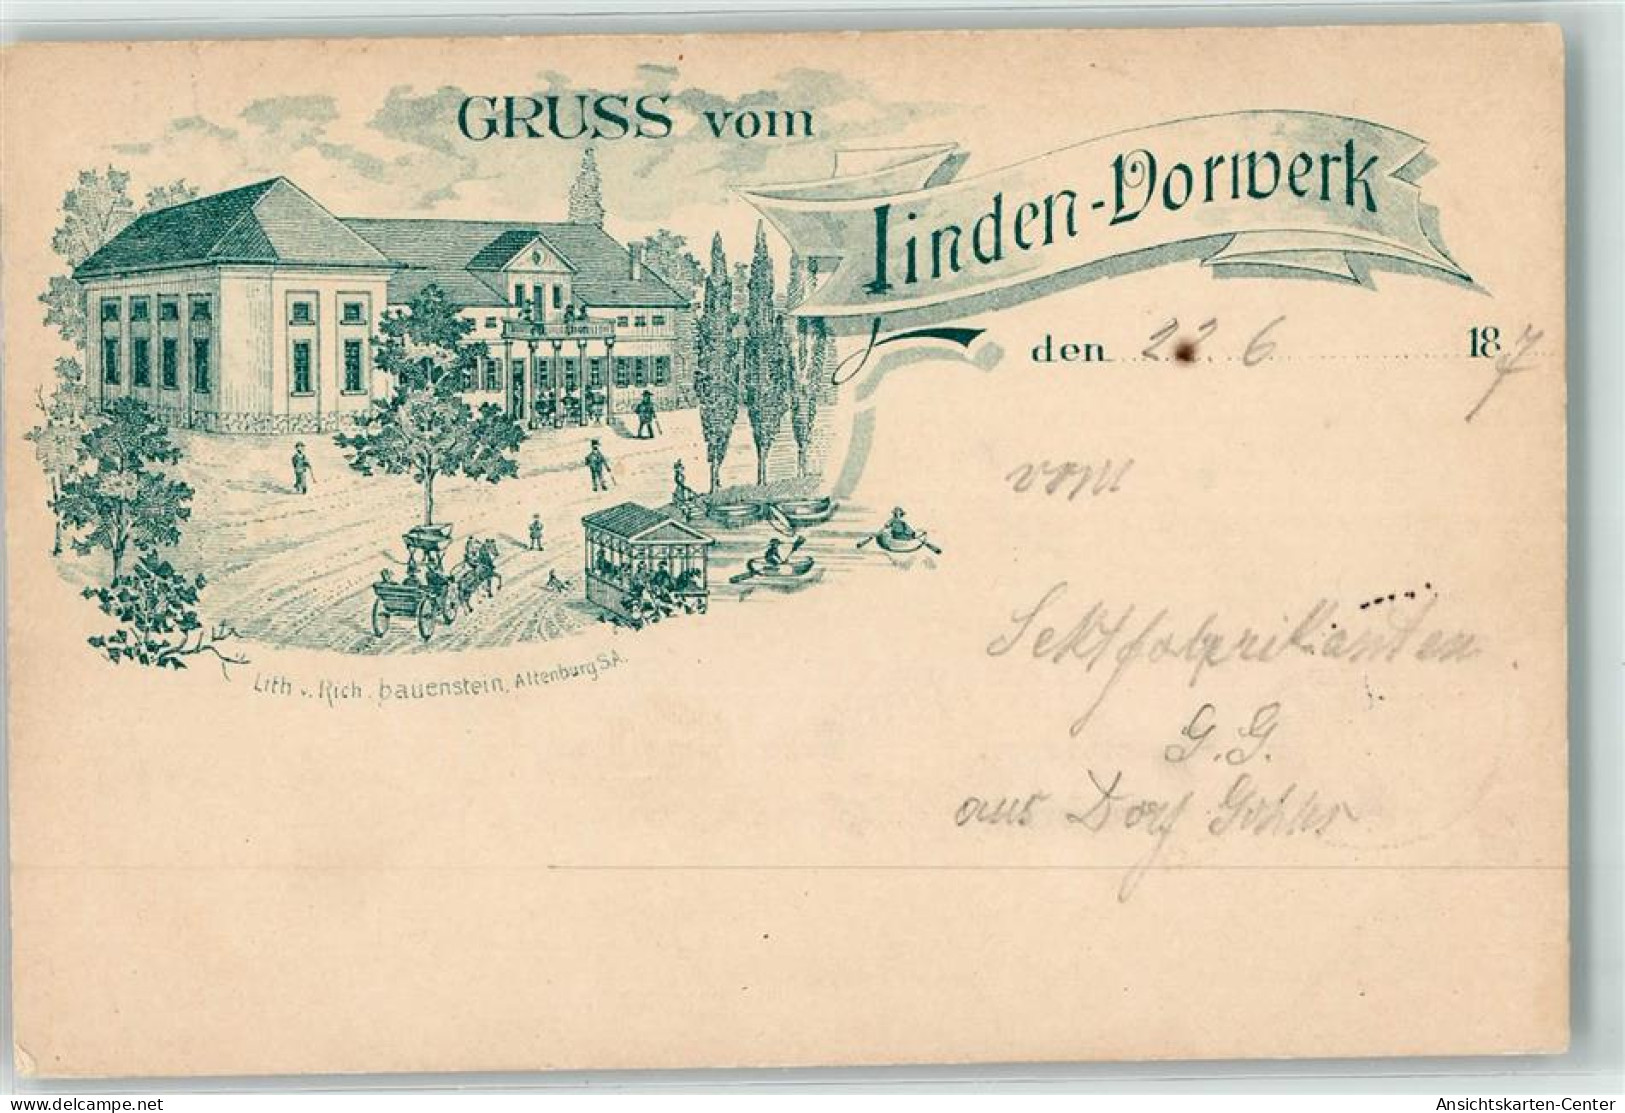 GRUSS vom
Linden-Vorwerk
den 22 6 187
vom
Sektfabrikanten
G. G.
aus Dorf
Lith v. Rich. Bauenstein, Altenburg S.A.
delcampe.net
Ansichtskarten-Center